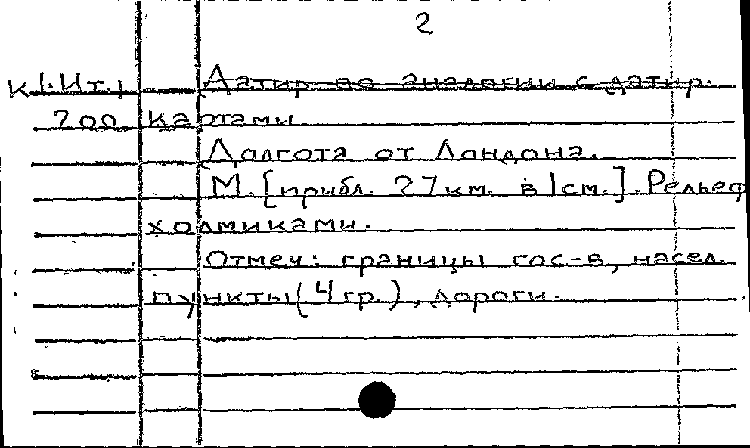 2
К 1.Ит.1 Датир по аналогии с датир.
200 картами.
Долгота от Лондона.
М. [прибл. 27 км. в 1 см.]. Рельеф
холмиками.
Отмеч: границы гос-в, насел.
пункты (4 гр.), дороги.